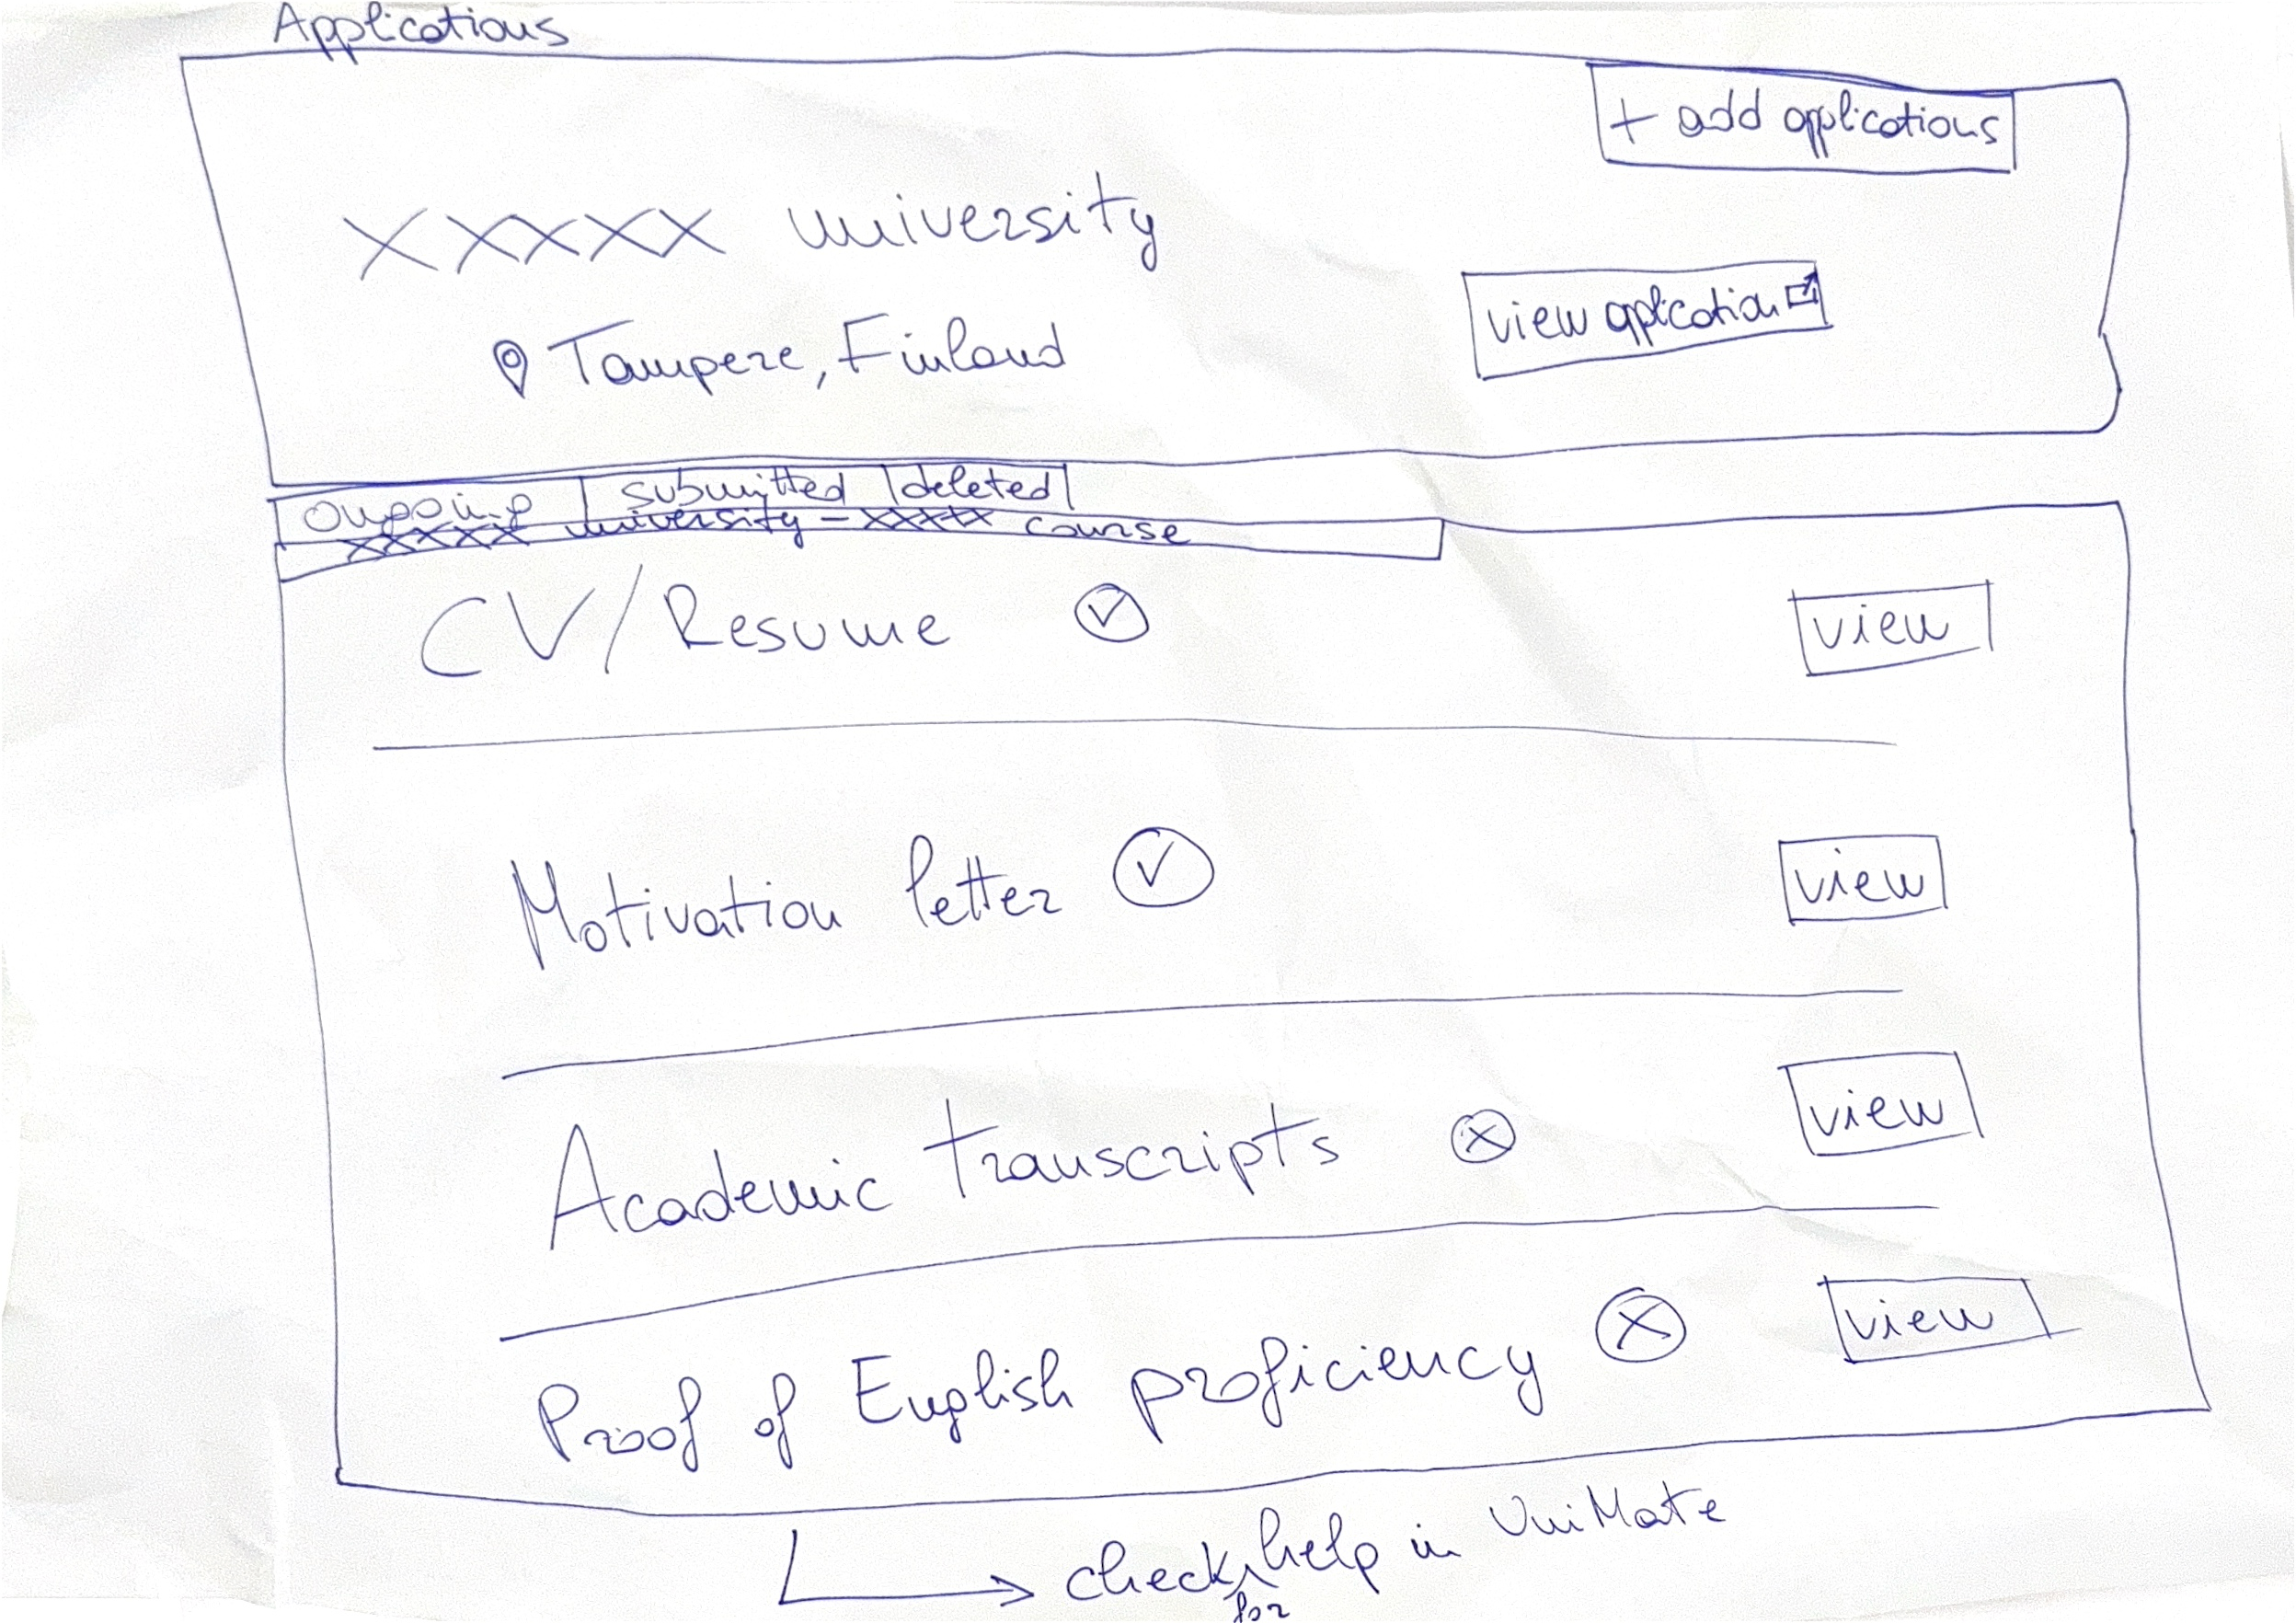 Applications
+ add applications
XXXXX university
view aplication
Tampere, Finland
Ongoing submitted deleted
XXXXX university - XXXXX course
CV/Resume view
Motivation letter view
Academic transcripts view
Proof of English proficiency view
check for help in UniMate